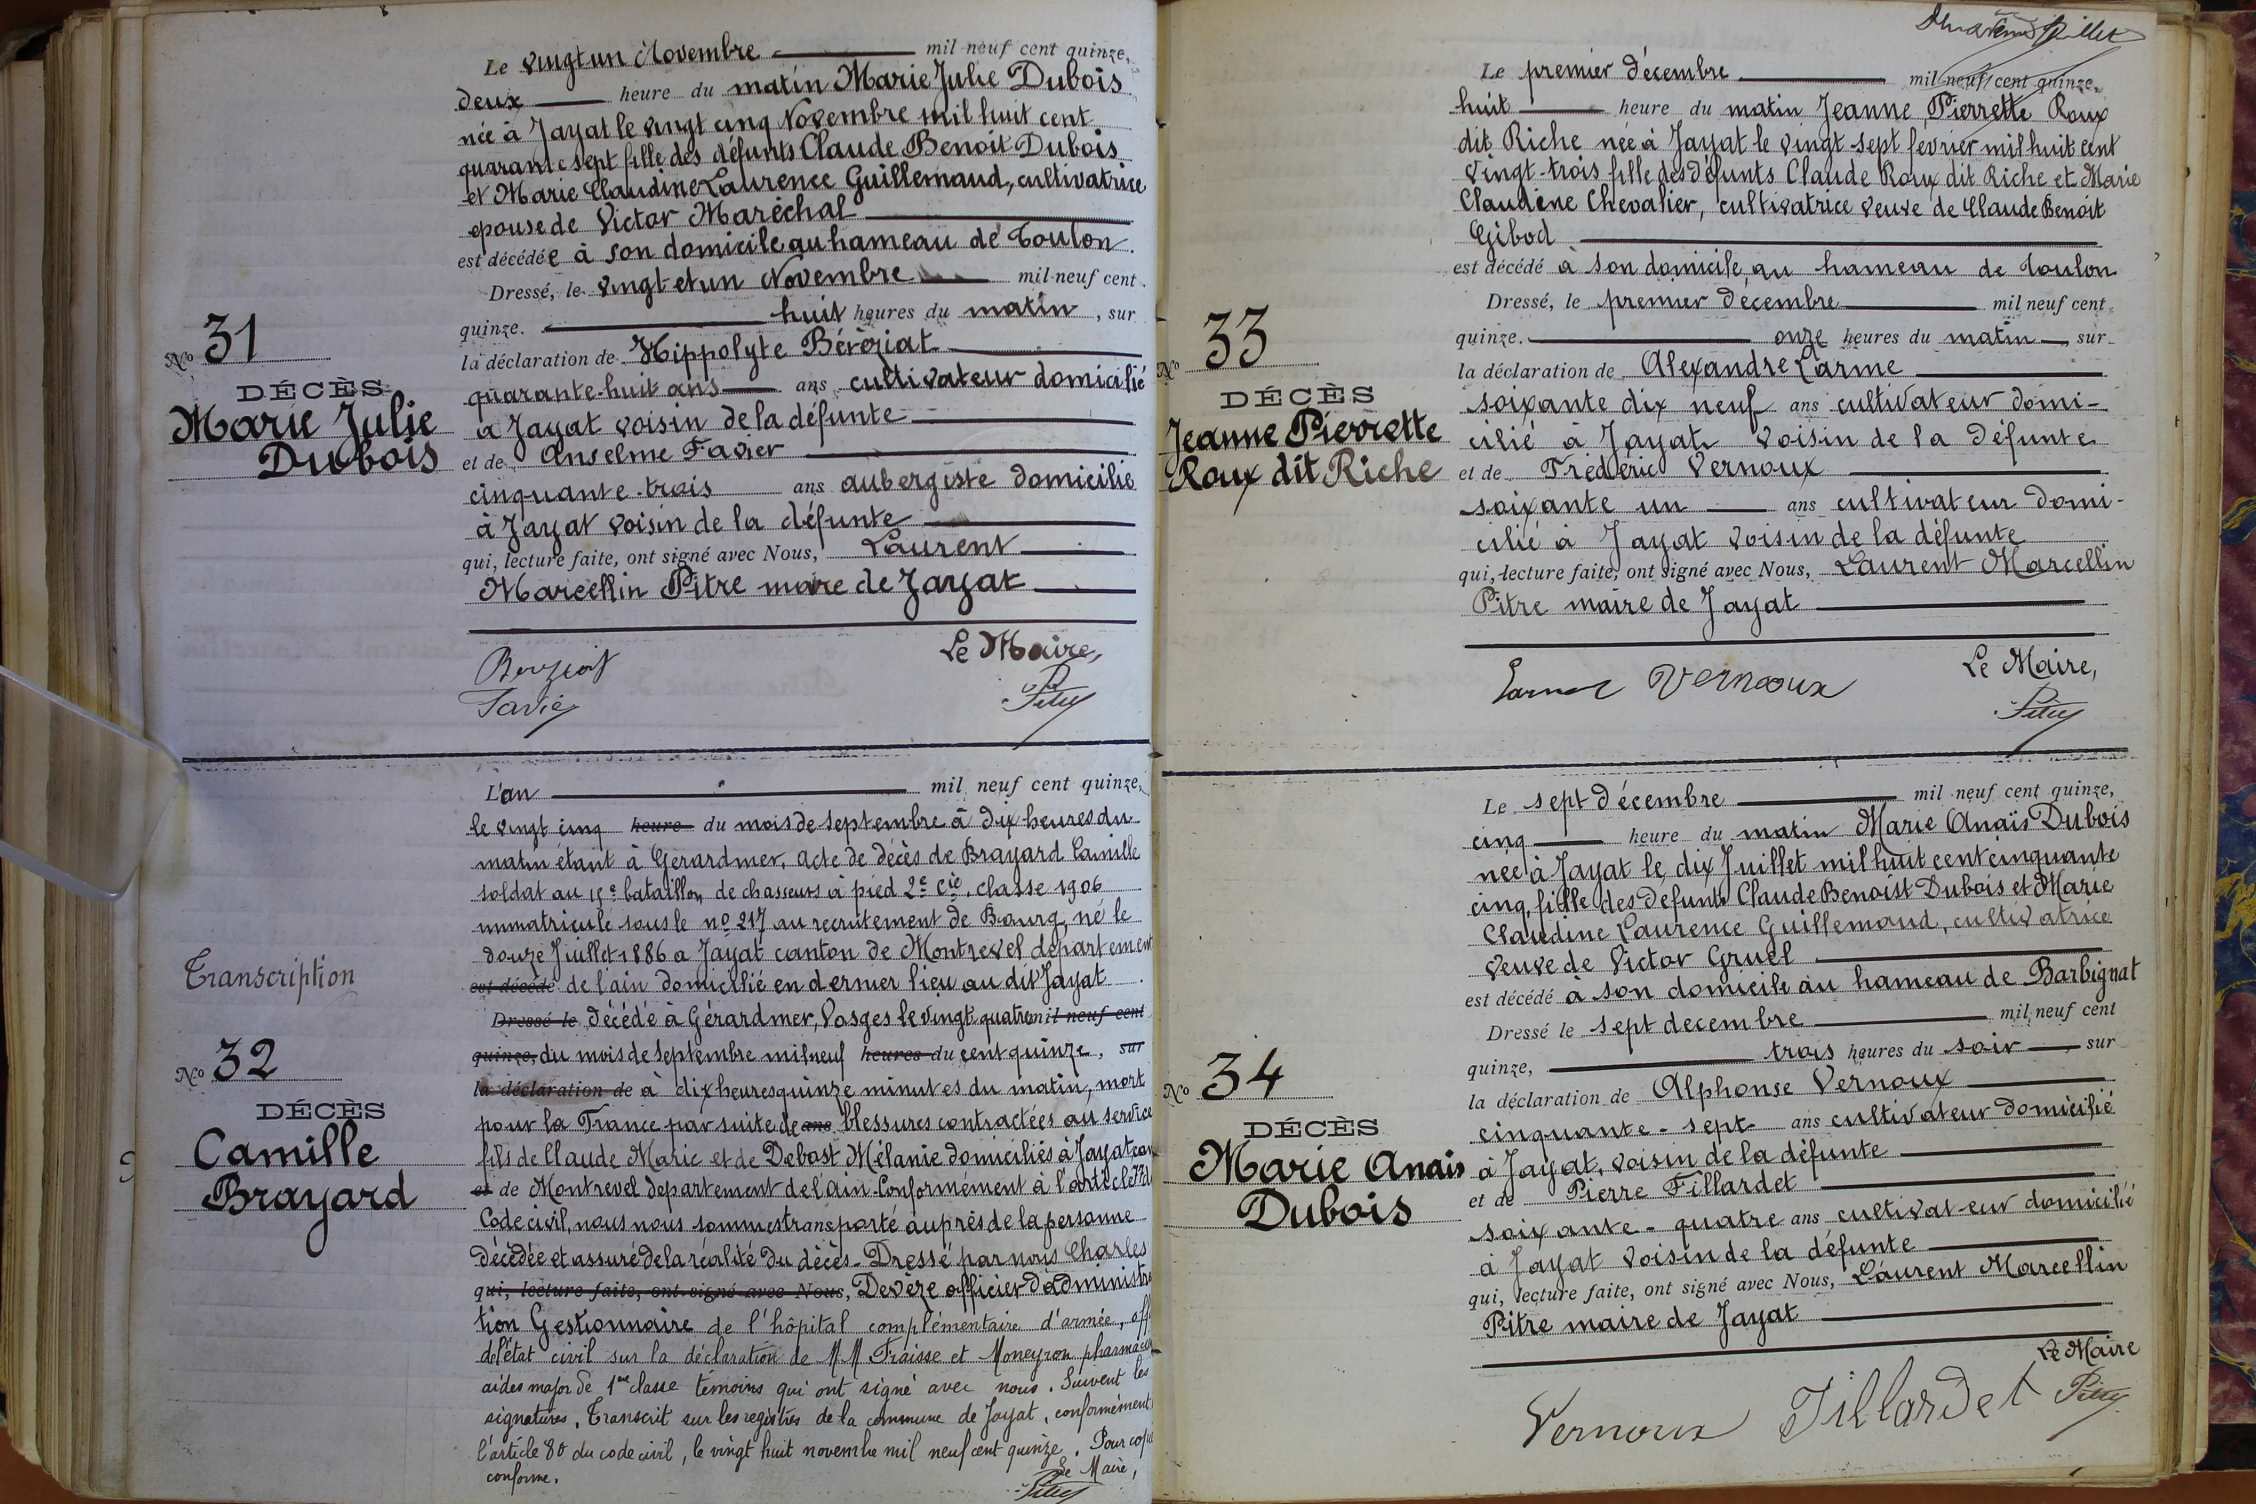 Le vingt un Novembre mil neuf cent quinze,
deux heure du matin Marie Julie Dubois
née à Jayat le vingt cinq Novembre mil huit cent
quarante sept fille des défunts Claude Benoit Dubois
et Marie Claudine Laurence Guillemaud, cultivatrice
epouse de Victor Maréchal
est décédée à son domicile au hameau de Toulon.
Dressé, le vingt et un Novembre mil neuf cent
quinze. huit heures du matin, sur
la déclaration de Hippolyte Béréziat
quarante-huit ans ans cultivateur domicilié
à Jayat voisin de la défunte
et de Anselme Favier
cinquante-trois ans aubergiste domicilié
à Jayat voisin de la défunte
qui, lecture faite, ont signé avec Nous, Laurent
Marcellin Pitre maire de Jayat
Le Maire,
Favier
Pitre
No 31
DÉCÈS
Marie Julie
Dubois
L'an mil neuf cent quinze,
le vingt cinq heure du mois de septembre à dix heures du
matin étant à Gerardmer, acte de décès de Brayard Camille
soldat au 15e bataillon de chasseurs à pied 2e Cie, classe 1906
immatriculé sous le no 217 au recrutement de Bourg, né le
douze Juillet 1886 a Jayat canton de Montrevel département
est décédé de l'ain domicilié en dernier lieu au dit Jayat
Dressé le décédé à Gérardmer, Vosges le vingt quatre mil neuf cent
quinze, du mois de septembre mil neuf heures du cent quinze, sur
la déclaration de à dix heures quinze minutes du matin, mort
pour la France par suite de ans blessures contractées au service
fils de Claude Marie et de Debost Mélanie domiciliés à Jayat, can
et de Montrevel departement de l'ain. Conformément à l'article 77 d
Code civil, nous nous sommes transporté auprès de la personne
décédée et assuré de la réalité du décès. Dressé par nous Charles
qui, lecture faite, ont signé avec Nous, Devèze officier d'administra
tion Gestionnaire de l'hôpital complémentaire d'armée, off
de l'état civil sur la déclaration de MM Fraisse et Moneyron pharmacien
aides major de 1ère classe témoins qui ont signé avec nous. Suivent les
signatures. Transcrit sur les registres de la commune de Jayat, conformément
l'article 80 du code civil, le vingt huit novembre mil neuf cent quinze. Pour copie
conforme.
Le Maire,
Pitre
Transcription
No 32
DÉCÈS
Camille
Brayard
Le premier décembre mil neuf cent quinze,
huit heure du matin Jeanne Pierrette Roux
dit Riche née à Jayat le vingt-sept fevrier mil huit cent
vingt-trois fille des défunts Claude Roux dit Riche et Marie
Claudine Chevalier, cultivatrice veuve de Claude Benoit
Gibod
est décédé à son domicile au hameau de Toulon
Dressé, le premier décembre mil neuf cent
quinze. onze heures du matin, sur
la déclaration de Alexandre Larme
soixante dix neuf ans cultivateur domi-
cilié à Jayat voisin de la défunte
et de Frédéric Vernoux
soixante un ans cultivateur domi-
cilié à Jayat voisin de la défunte
qui, lecture faite, ont signé avec Nous, Laurent Marcellin
Pitre maire de Jayat
Le Maire,
Larme Vernoux
Pitre
No 33
DÉCÈS
Jeanne Pierrette
Roux dit Riche
Le sept décembre mil neuf cent quinze,
cinq heure du matin Marie Anaïs Dubois
née à Jayat le dix Juillet mil huit cent cinquante
cinq, fille des défunts Claude Benoist Dubois et Marie
Claudine Laurence Guillemaud, cultivatrice
veuve de Victor Gruel
est décédé a son domicile au hameau de Barbignat
Dressé le sept decembre mil neuf cent
quinze, trois heures du soir sur
la déclaration de Alphonse Vernoux
cinquante-sept ans cultivateur domicilié
à Jayat, voisin de la défunte
et de Pierre Fillardet
soixante-quatre ans cultivateur domicilié
à Jayat voisin de la défunte
qui, lecture faite, ont signé avec Nous, Laurent Marcellin
Pitre maire de Jayat
Le Maire
Vernoux Fillardet Pitre
No 34
DÉCÈS
Marie Anais
Dubois